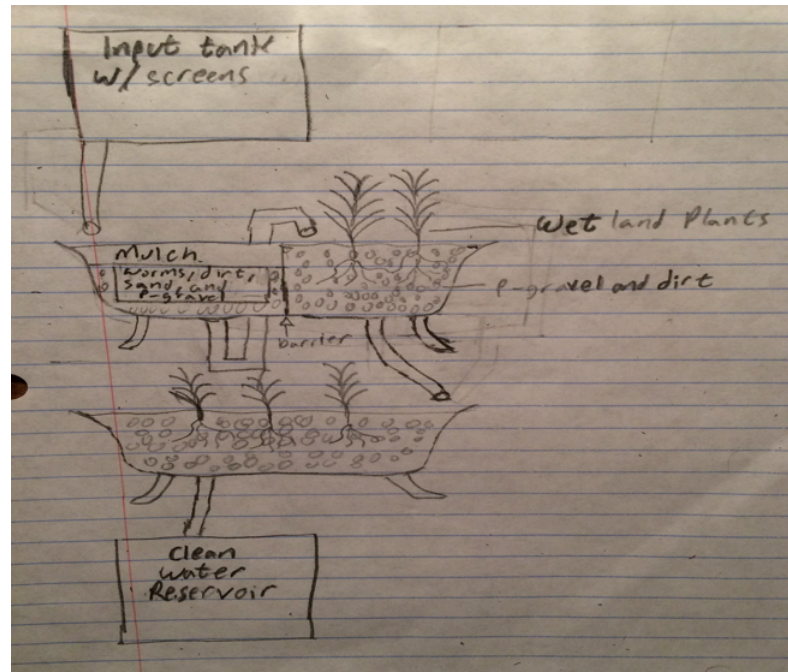 Input tank
w/ screens
Wetland Plants
Mulch
worms, dirt,
sand, and
P-gravel
P-gravel and dirt
barrier
Clean
water
Reservoir